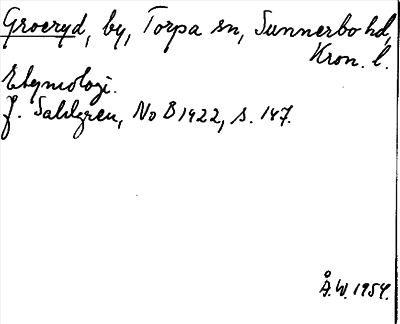 Groeryd, by, Torpa sn, Sunnerbo hd,
Kron. l.
Etymologi.
J. Sahlgren, No B 1922, s. 147.
Å.W. 1954.